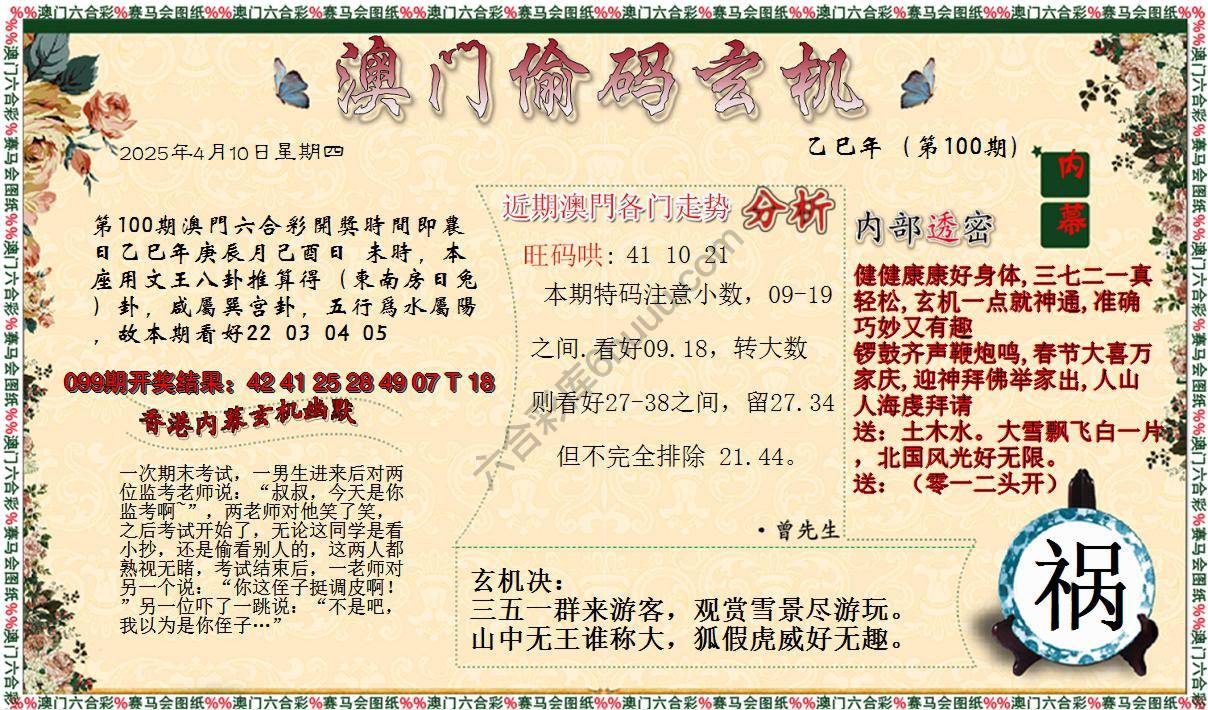 %%澳门六合彩%赛马会图纸%%澳门六合彩%赛马会图纸%%澳门六合彩%赛马会图纸%%澳门六合彩%赛马会图纸%%澳门六合彩%赛马会图纸%%澳门六合彩%赛马会图纸%
澳门偷码玄机
2025年4月10日星期四
乙巳年（第100期）
内
幕
第100期澳門六合彩開獎時間即農
日乙巳年庚辰月己酉日 未時，本
座用文王八卦推算得（東南房日兔
）卦，咸屬巽宫卦，五行爲水屬陽
，故本期看好22 03 04 05
099期开奖结果：42 41 25 28 49 07 T 18
香港内幕玄机幽默
一次期末考试，一男生进来后对两
位监考老师说：“叔叔，今天是你
监考啊~”，两老师对他笑了笑，
之后考试开始了，无论这同学是看
小抄，还是偷看别人的，这两人都
熟视无睹，考试结束后，一老师对
另一个说：“你这侄子挺调皮啊！
”另一位吓了一跳说：“不是吧，
我以为是你侄子…”
近期澳門各门走势 分析
旺码哄: 41 10 21
本期特码注意小数，09-19
之间.看好09.18，转大数
则看好27-38之间，留27.34
但不完全排除 21.44。
·曾先生
内部透密
健健康康好身体,三七二一真
轻松,玄机一点就神通,准确
巧妙又有趣
锣鼓齐声鞭炮鸣,春节大喜万
家庆,迎神拜佛举家出,人山
人海虔拜请
送：土木水。大雪飘飞白一片
，北国风光好无限。
送：（零一二头开）
玄机决：
三五一群来游客，观赏雪景尽游玩。
山中无王谁称大，狐假虎威好无趣。
祸
%%澳门六合彩%赛马会图纸%%澳门六合彩%赛马会图纸%%澳门六合彩%赛马会图纸%%澳门六合彩%赛马会图纸%%澳门六合彩%赛马会图纸%%澳门六合彩%赛马会图纸%